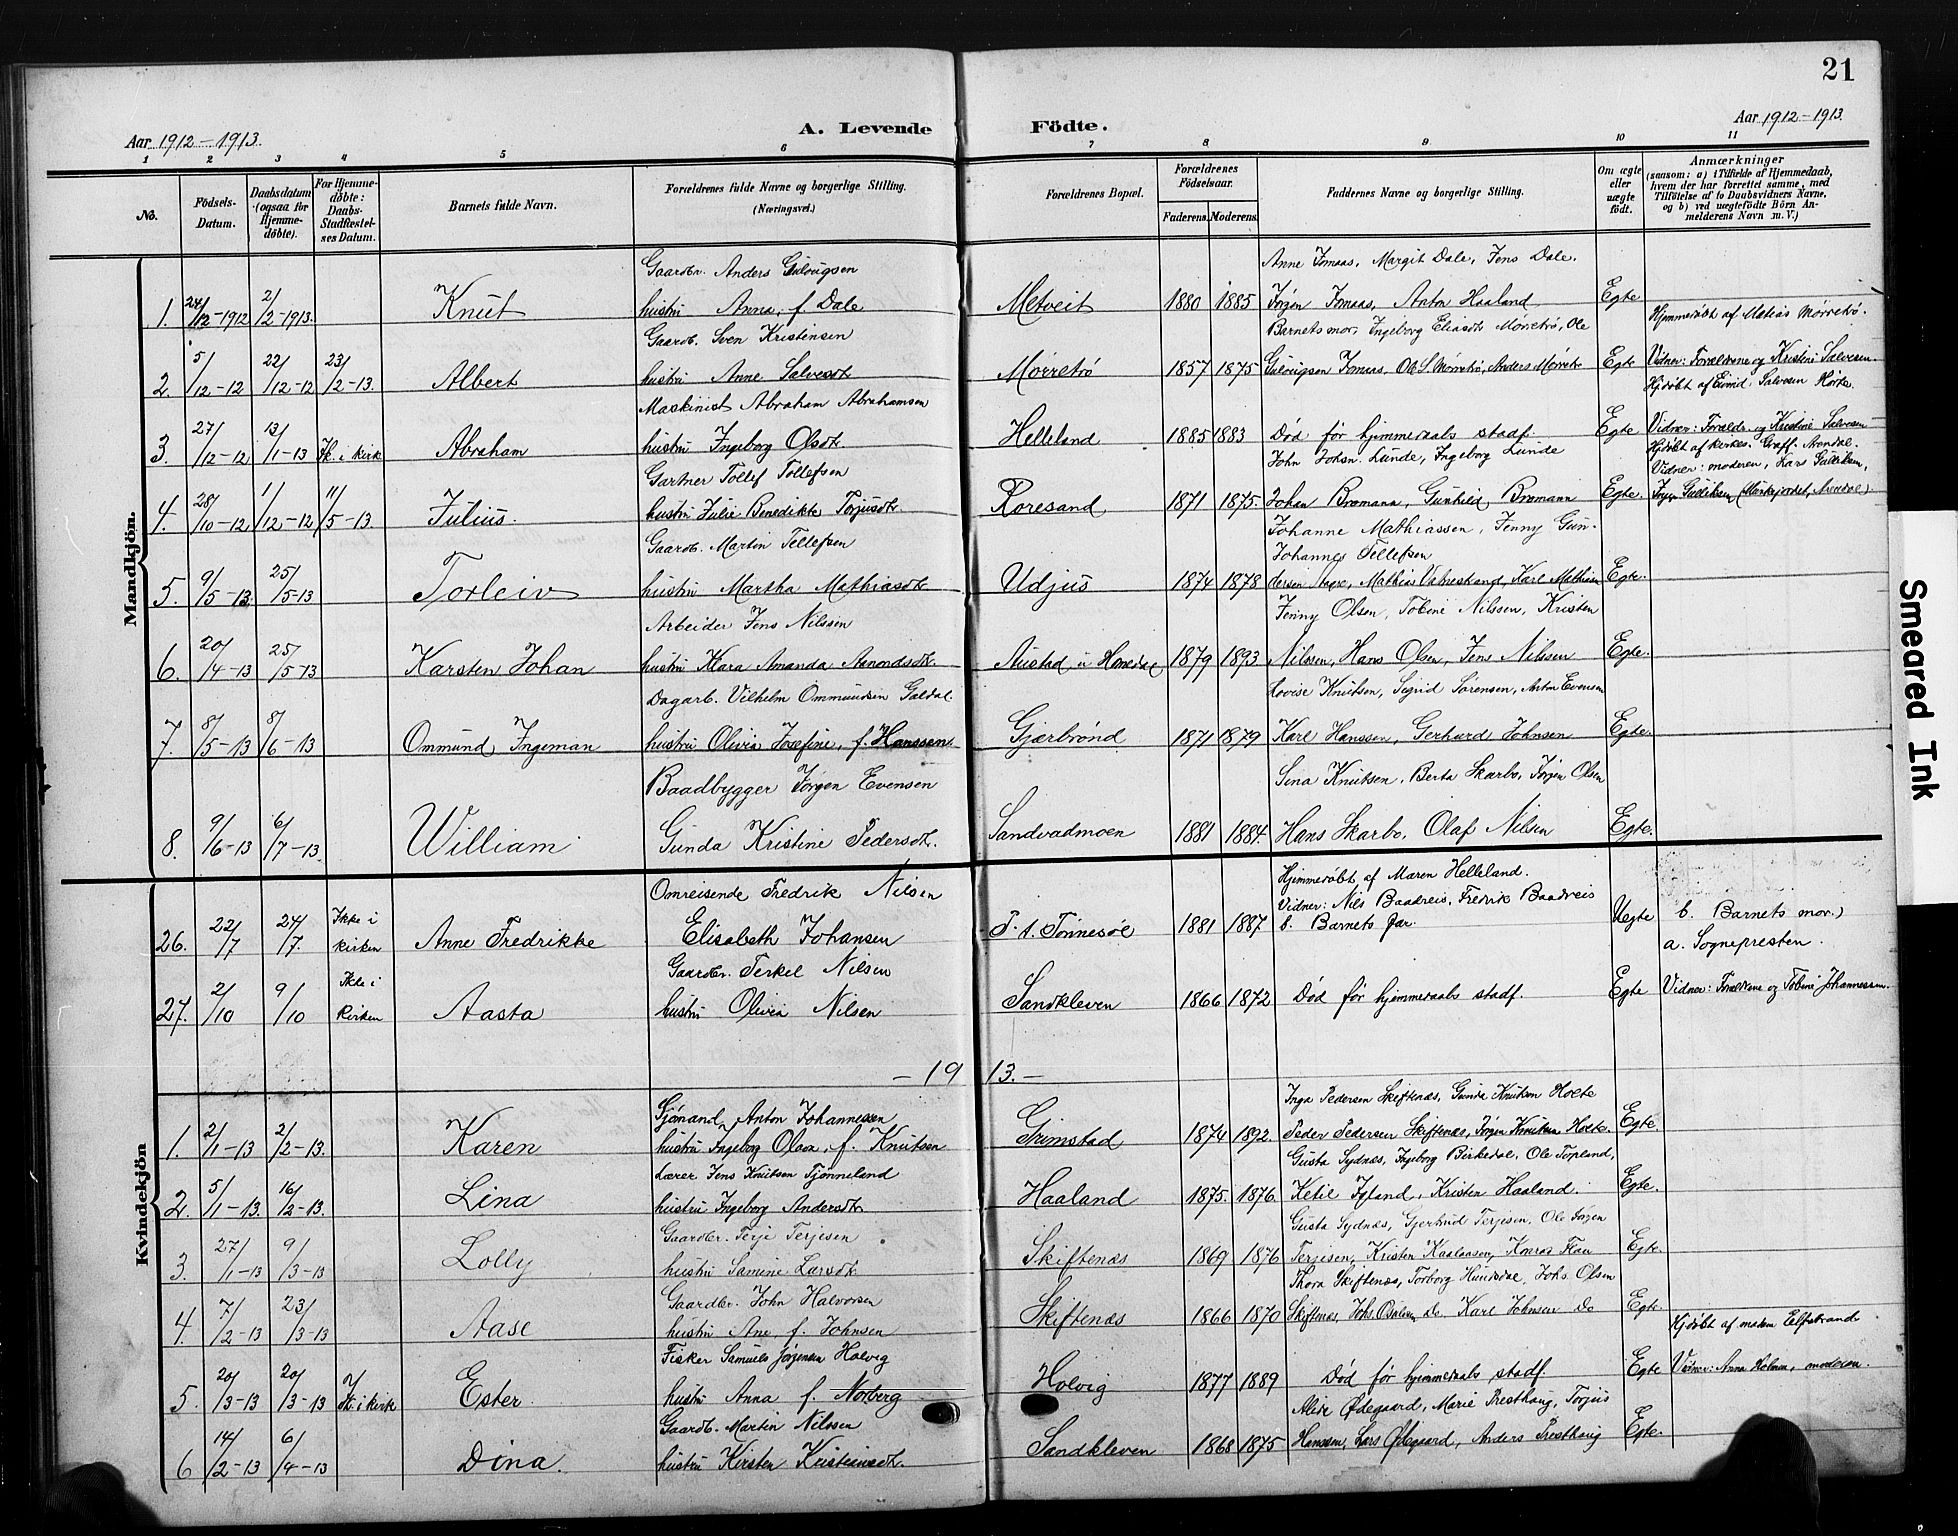 21
Aar 1912–1913.
A. Levende Födte.
Aar 1912–1913.
1 2 3 4 5 6 7 8 9 10 11
No.
Födsels-Datum.
Daabsdatum (ogsaa for Hjemme-döbte).
For Hjemme-döbte: Daabs-Stadfæstel-ses Datum.
Barnets fulde Navn.
Forældrenes fulde Navne og borgerlige Stilling. (Næringsvei.)
Forældrenes Bopæl.
Forældrenes Födselsaar.
Faderens. Moderens.
Faddernes Navne og borgerlige Stilling.
Om ægte eller uægte födt.
Anmærkninger
(saasom: a) i Tilfælde af Hjemmedaab, hvem der har forrettet samme, med Tilföielse af to Daabsvidners Navne, og b) ved uægtefödte Börn An-melderens Navn m. V.)
Mandkjön.
Gaardbr. Anders Gulovigsen
Anne Tomaas, Margit Dale, Jens Dale.
1. 24/12-1912 2/2-1913. Knut hustru Anna, f. Dale Metveit 1880 1885 Jørgen Tomaas, Anton Haaland Egte
Gaardb. Sven Kristensen
Barnets mor, Ingeborg Eliasdt. Mørretrø, Ole
Hjemmedøbt af Matias Mørretrø.
2. 5/12-12 22/12-12 23/2-13. Albert hustru Anne Salvesdt. Mørretrø 1857 1875 Gulovigsen Tomaas, Ole S. Mørretrø, Anders Mørretrø Egte
Vidner: Forældrene og Kristine Salvesen.
Maskinist Abraham Abrahamsen
Hjdøbt af Eivind Salvesen Hørte.
3. 27/12-12 13/1-13 Ik. i kirk Abraham hustru Ingeborg Olsdt. Helleland 1885 1883 Død før hjemmedaabs stadf. Egte
Vidner: Forældre og Kristine Salvesen
Gartner Tollef Tollefsen
John Johsn. Lunde, Ingeborg Lunde
Hjdøbt af kirkes. Graff. Arendal.
Vidner: moderen, Lars Gulliksen,
4. 28/10-12 1/12-12 11/5-13 Julius. hustru Julie Benedikte Torjusdt. Roresand 1871 1875. Johan Bromann, Gunhild Bromann Egte.
Gaardb. Martin Tellefsen
Johanne Mathiassen, Jenny Gun-
Johannes Tellefsen
5. 9/5-13. 25/5-13 Torleiv hustru Martha Mathiasdt. Udjus 1874 1878 Egte.
Arbeider Jens Nilssen
Jenny Olsen, Tobine Nilssen, Kristen
6. 20/4-13 25/5-13 Karsten Johan hustru Klara Amanda Aanondsdt. 1879 1893 Nilssen, Hans Olsen, Jens Nilssen Egte.
Dagarb. Vilhelm Ommundsen Galdal.
Lovise Knutsen, Sigrid Sørensen, Anton Evensen
7. 8/5-13 8/6-13 Ommund Ingeman hustru Olivia Josefine, f. Hanssen. Gjærbrønd 1871 1879 Karl Hanssen, Gerhard Johnsen Egte.
Baadbygger Jørgen Evensen
Sina Knutsen, Berta Skarbo, Jørgen Olsen
8. 9/6-13 6/7-13. William Gunda Kristine Pedersdt. Sandvadmoen 1881 1884. Hans Skarbo, Olaf Nilsen Egte.
Kvindekjön
Omreisende Fredrik Nilsen
Hjemmedøbt af Maren Helleland.
Vidner: Nils Baadreis, Fredrik Baadreis
26. 22/7 24/7. Ikke i kirken Anne Fredrikke Elisabeth Johansen P. t. Tønnesøl 1881 1887 b. Barnets far. Uegte b. Barnets mor.)
a. Sognepresten.
Gaardbr. Terkel Nilsen
27. 2/10 9/10 Ikke i Kirken Aasta hustru Olivia Nilsen Sandkleven 1866 1872 Død før hjemmedaabs stadf. Egte Vidner: Forældrene og Tobine Johannessen.
– 19 13. –
Sjømand, Anton Johannessen
Inga Pedersen Skiftenæs, Gunda Knutsen Holte
1. 2/1-13 2/2-13. Karen hustru Ingeborg Olson, f. Knutsen Grimstad 1874 1892. Peder Pedersen Skiftenæs, Jørgen Knutsen Holte. Egte.
Lærer Jens Knutsen Tjønneland
Gusta Sydnæs, Ingeborg Birkedal, Ole Topland,
2. 5/1-13. 16/2-13. Lina hustru Ingeborg Andersdt. Haaland 1875. 1876. Ketil Igland, Kristen Haaland. Egte.
Gaardbr. Terje Terjesen
Gusta Sydnæs, Gjertrud Terjesen, Ole Jørgen
3. 27/1-13 9/3-13 Lolly hustru Samine Larsdt. Skiftenæs 1869 1876 Terjesen, Kristen Kaalaasen, Konrad Flaa Egte.
Gaardbr. John Halvorsen
Thora Skiftenæs, Torborg Hundsdal, Johs. Olsen
4. 7/2-13 23/3-13 Aase hustru Ane, f. Johnsen Skiftenæs 1866 1870 Karl Johnsen do Egte.
Fisker Samuel Jørgensen Holvig
5. 20/3-13 20/3-13 Ik. i kirk Ester hustru Anna f. Norberg Holvig 1877 1889 Død før hjemmedaabs stadf. Egte Vidner: Anna Holmen, moderen.
Gaardb. Martin Nilssen
Alide Ødegaard, Marie Presthaug, Torjus
6 14/2-13 6/4-13 Dina. hustru Kirsten Kristiansdt. Sandkleven 1868 1875 Hanssen, Lars Ødegaard, Anders Presthaug Egte.
Smeared Ink